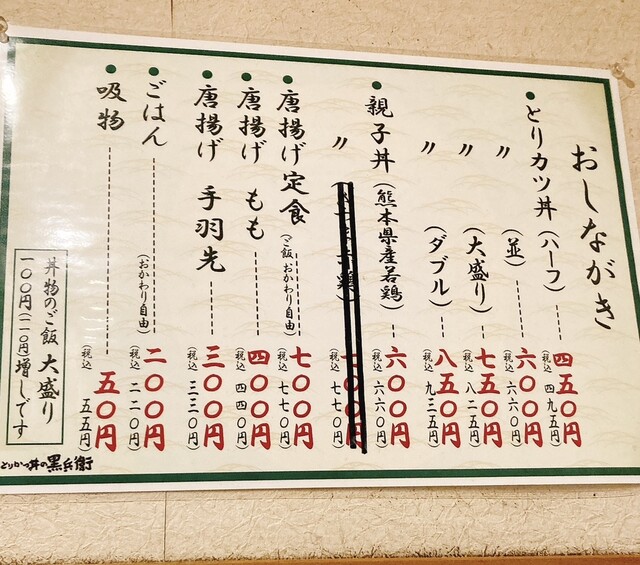 おしながき
とりカツ丼(ハーフ)四五〇円(税込 四九五円)
〃(並)六〇〇円(税込 六六〇円)
〃(大盛り)七五〇円(税込 八二五円)
〃(ダブル)八五〇円(税込 九三五円)
親子丼(熊本県産若鶏)六〇〇円(税込 六六〇円)
〃 七〇〇円(税込 七七〇円)
唐揚げ定食(ご飯 おかわり自由)七〇〇円(税込 七七〇円)
唐揚げ もも 四〇〇円(税込 四四〇円)
唐揚げ 手羽先 三〇〇円(税込 三三〇円)
ごはん(おかわり自由)二〇〇円(税込 二二〇円)
吸物 五〇円(税込 五五円)
丼物のご飯 大盛り
一〇〇円(一一〇円)増しです
とりかつ丼の黒兵衛